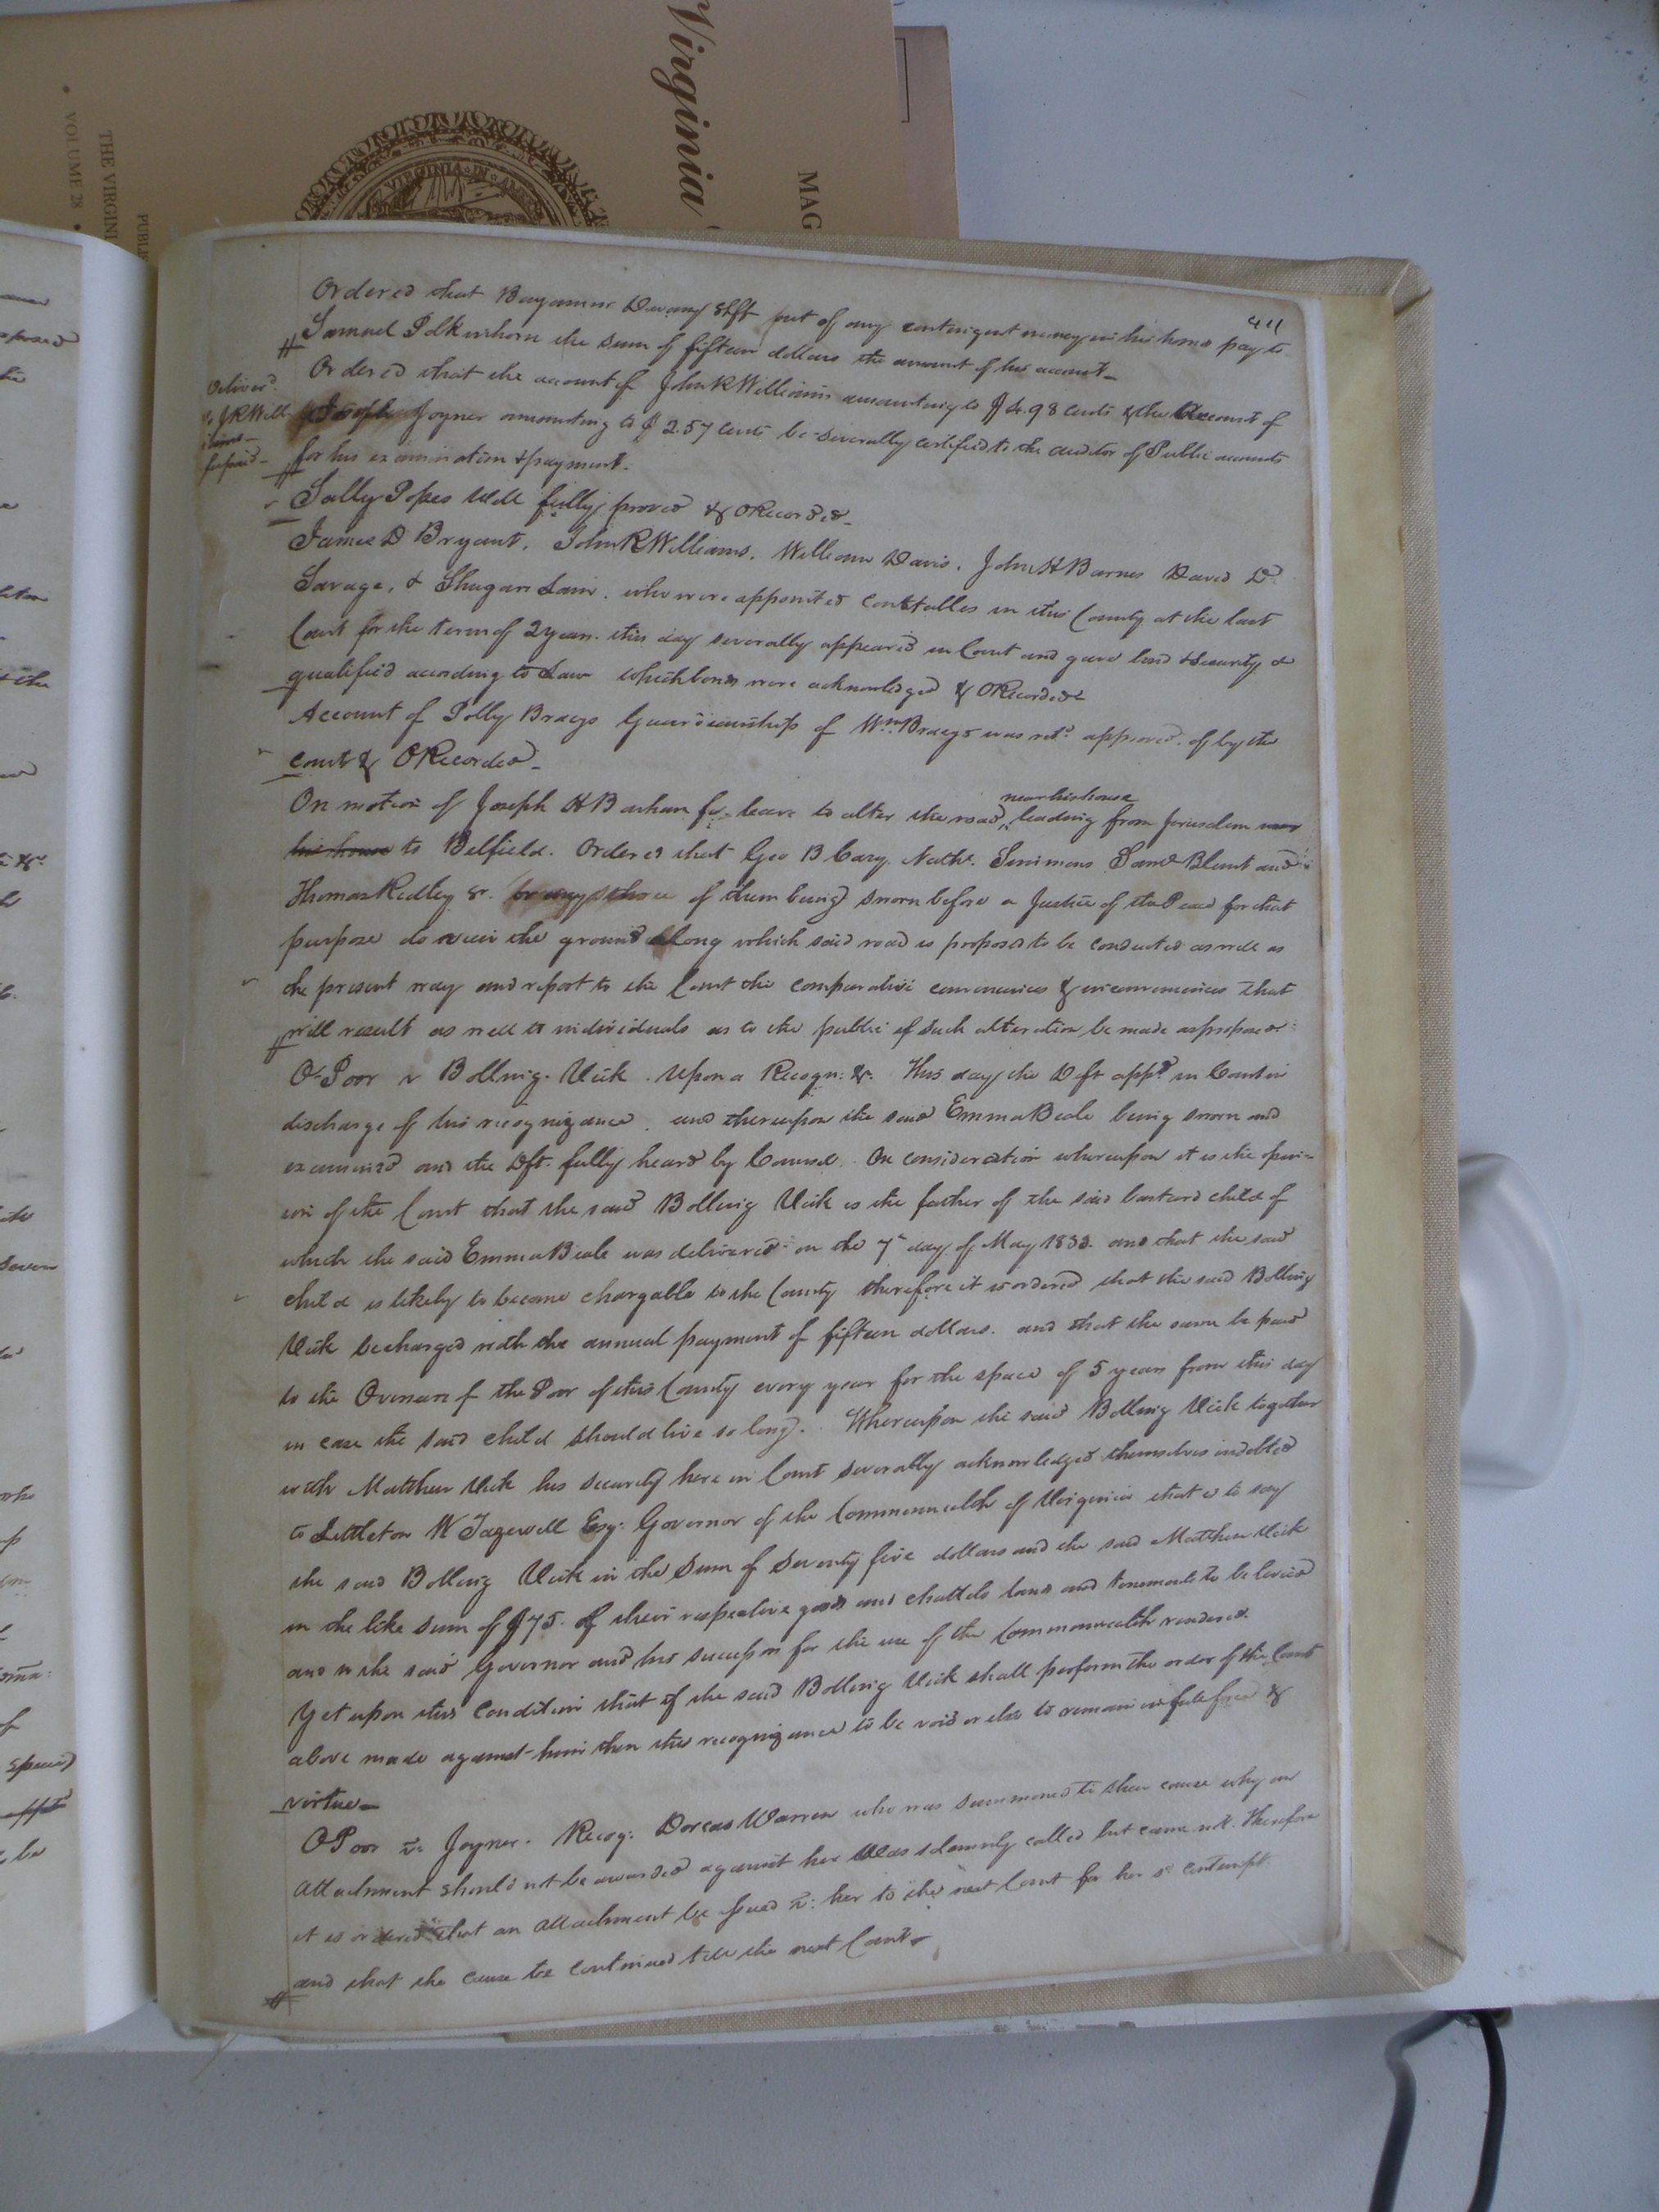 Virginia
MAG
THE VIRGINI
VOLUME 28
PUBLI
VIRGINIA IN
411
Ordered that Benjamin Devany Shft out of any contingent money in his hands pay to
Samuel Polkinhorn the sum of fifteen dollars the amount of his account
Ordered that the account of John R Williams amounting to $4.98 cents & the Account of
Joseph Joyner amounting to $2.57 cents be severally certified to the auditor of Public accounts
for his examination & payment.
Deliverd
to JR Will
iams
Sally Popes Will fully proved & ORecorded
James D Bryant, John R Williams, William Davis, John H Barnes David D
Savage, & Shugars Lain, who were appointed constables in this County at the last
Court for the term of 2 years. this day severally appeared in Court and gave bond & Security &
qualified according to Law which bonds were acknowledged & ORecorded
Account of Polly Braeys Guardianship of Wm. Braeys was retd. approved of by the
court & ORecorded
On motion of Joseph H Barham for leave to alter the road near his house leading from Jerusalem near
his house to Belfield. Ordered that Geo B Cary, Nathl. Simmons Saml Blunt and
Thomas Ridley sr. (or any three of them being) sworn before a Justice of the Peace for that
purpose do view the ground along which said road is proposed to be conducted as well as
the present way and report to the Court the comparative conveniences & inconveniences that
will result as well to individuals as to the public if such alteration be made as proposed.
O. Poor v Bolling Vick. Upon a Recogn: &c. This day the Deft appd. in Court in
discharge of his recognizance, and thereupon the said Emma Beale being sworn and
examined and the Dft. fully heard by Counsel. On consideration whereupon it is the opin-
ion of the Court that the said Bolling Vick is the father of the said bastard child of
which the said Emma Beale was delivered on the 7th day of May 1833. and that the said
child is likely to become chargable to the County therefore it is ordered that the said Bolling
Vick be charged with the annual payment of fifteen dollars. and that the same be paid
to the Overseers of the Poor of this County every year for the space of 5 years from this day
in case the said child should live so long. Whereupon the said Bolling Vick together
with Matthew Vick his security here in Court severally acknowledged themselves indebted
to Littleton W Tazewell Esq. Governor of the Commonwealth of Virginia that is to say
the said Bolling Vick in the sum of seventy five dollars and the said Matthew Vick
in the like sum of $75. of their respective goods and chattels lands and tenements to be levied
and to the said Governor and his successors for the use of the Commonwealth rendered.
Yet upon this condition that if the said Bolling Vick shall perform the order of the Court
above made against him then this recognizance to be void or else to remain in full force &
virtue
OPoor v. Joyner. Recog: Dorcas Warren who was summoned to shew cause why an
attachment should not be awarded against her was solemnly called but came not. Therefore
it is ordered that an attachment be issued v: her to the next Court for her sd contempt.
and that the cause be continued till the next Court